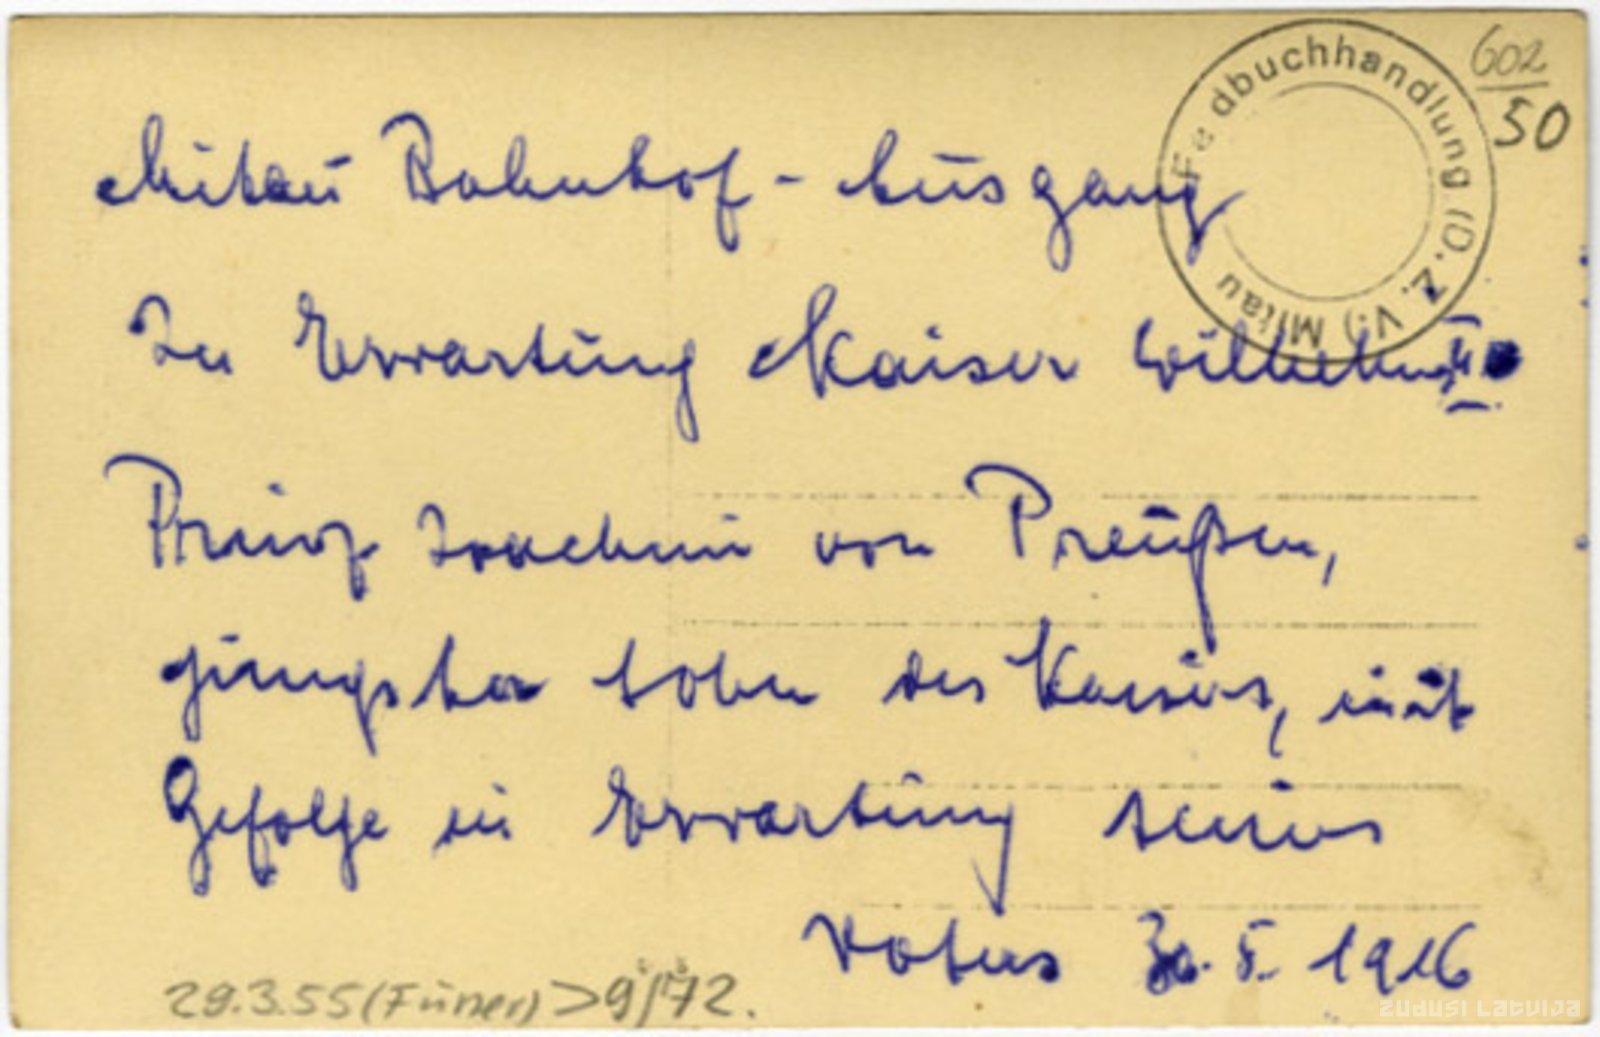 602/50
Feldbuchhandlung (O.Z.V.) Mitau
Mitau Bahnhof - Ausgang
In Erwartung Kaiser Wilhelm II
Prinz Joachim von Preußen,
jüngster Sohn des Kaisers, mit
Gefolge in Erwartung seines
Vaters 30. 5. 1916
29.3.55 (Füner) > 9/72.
zudusi Latvija